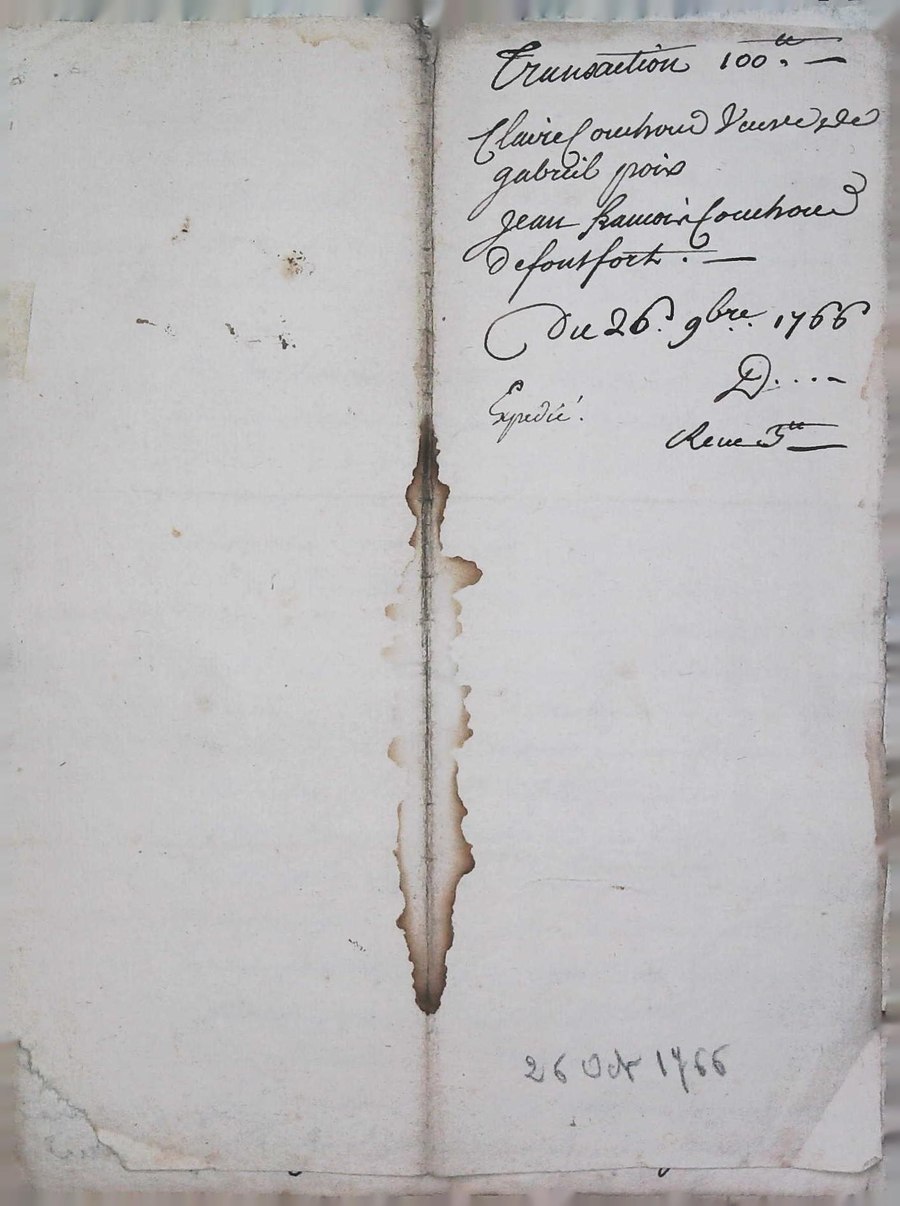 Transaction 100.tt —
Claire Couhoud Veuve de
gabriel poix
jean francois Couhoud
defontfort. —
Du 26. 9bre. 1766
D....
Expedié.
Reveu 3tt —
26 Oct 1766